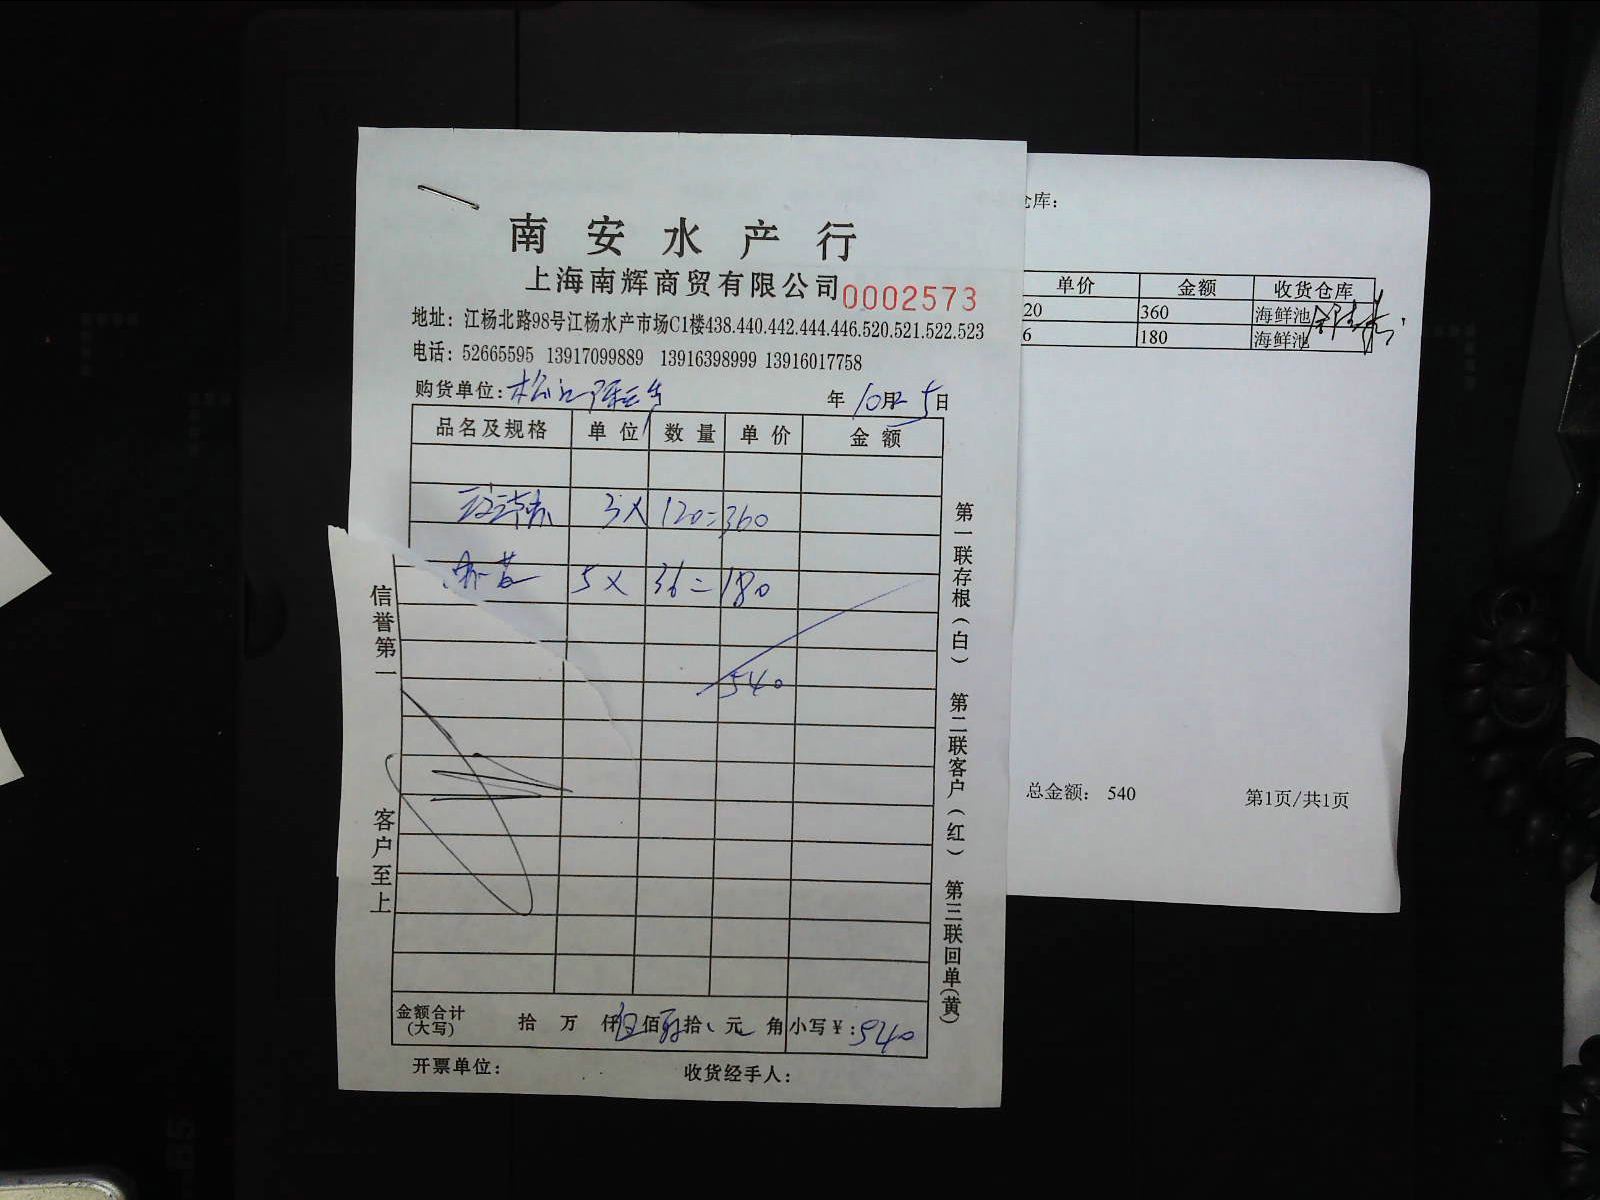 南安水产行
上海南辉商贸有限公司 0002573
地址：江杨北路98号江杨水产市场C1楼438.440.442.444.446.520.521.522.523
电话：52665595 13917099889 13916398999 13916017758
购货单位：松江
年10月5日
品名及规格 单位 数量 单价 金额
3× 120=360
5× 36=180
540
金额合计(大写) 拾 万 仟伍佰 拾 元 角 小写￥:540
开票单位： 收货经手人：
信誉第一 客户至上
第一联存根（白） 第二联客户（红） 第三联回单(黄)
仓库：
单价 金额 收货仓库
20 360 海鲜池
6 180 海鲜池
总金额： 540 第1页/共1页